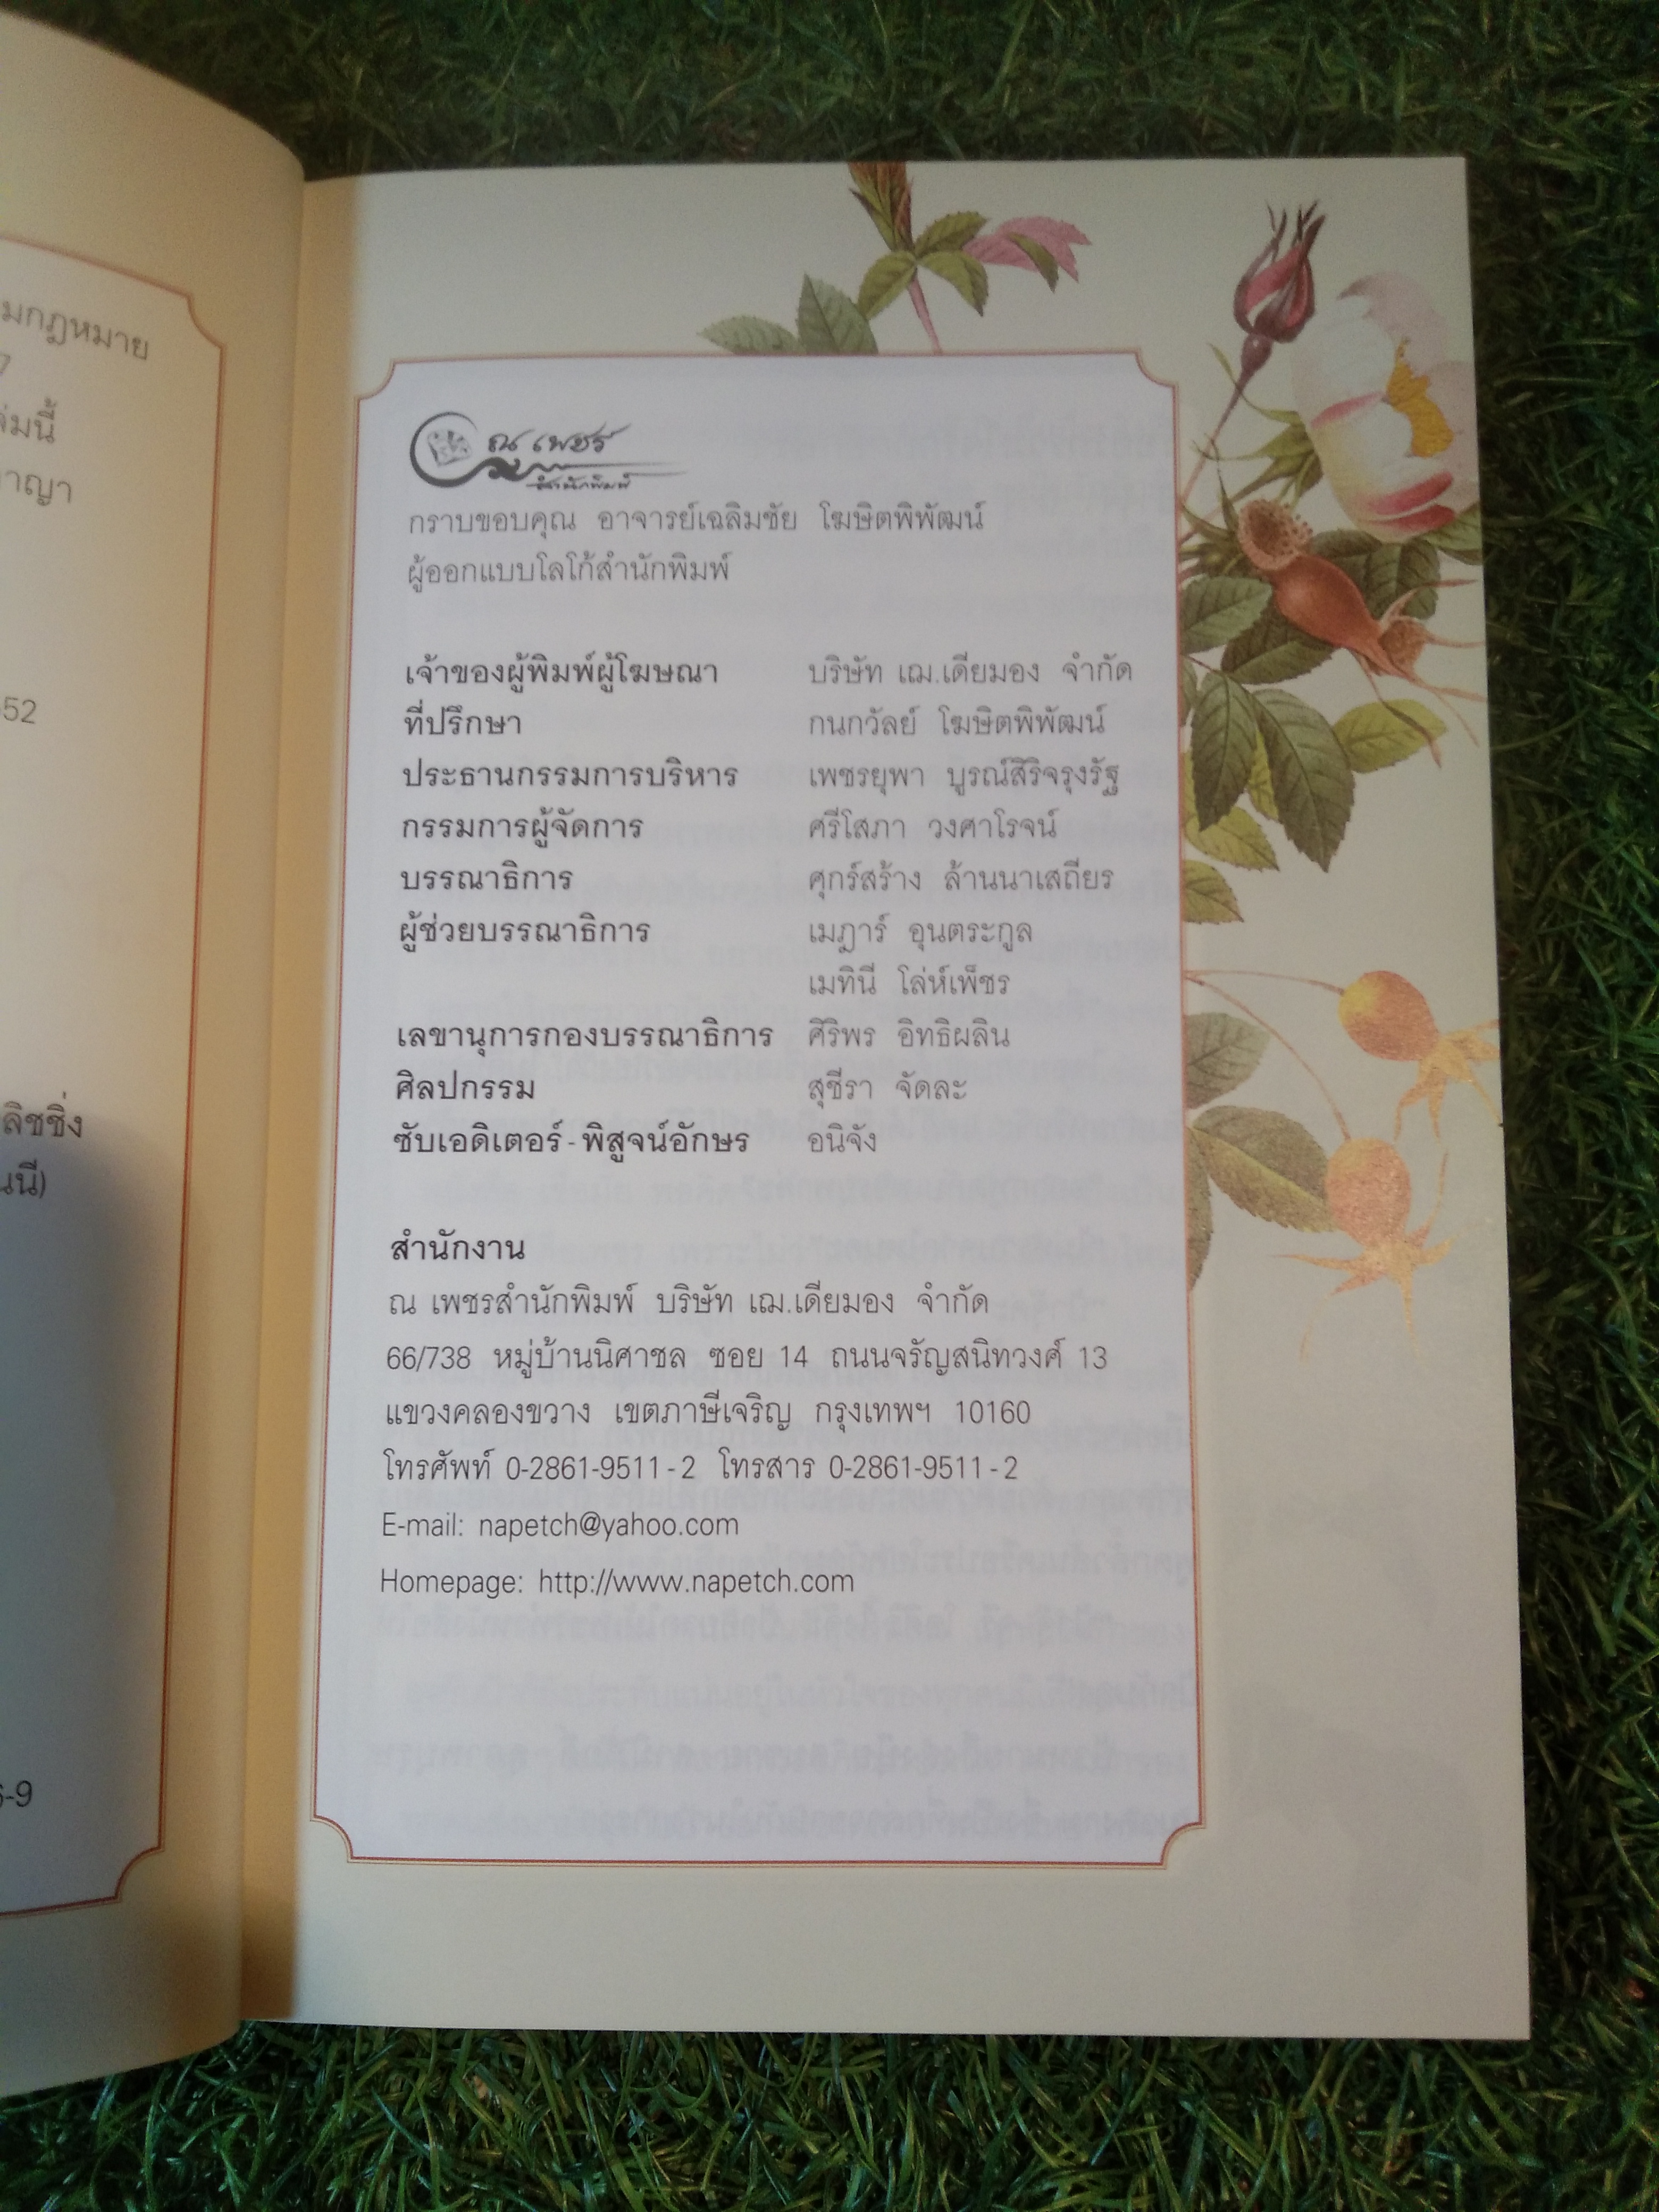 มกฎหมาย
7
ล่มนี้
าญา
52
ลิชชิ่ง
นนี)
6-9
ณ เพชร
สำนักพิมพ์
กราบขอบคุณ อาจารย์เฉลิมชัย โฆษิตพิพัฒน์
ผู้ออกแบบโลโก้สำนักพิมพ์
เจ้าของผู้พิมพ์ผู้โฆษณา บริษัท เฌ.เดียมอง จำกัด
ที่ปรึกษา กนกวัลย์ โฆษิตพิพัฒน์
ประธานกรรมการบริหาร เพชรยุพา บูรณ์สิริจรุงรัฐ
กรรมการผู้จัดการ ศรีโสภา วงศาโรจน์
บรรณาธิการ ศุกร์สร้าง ล้านนาเสถียร
ผู้ช่วยบรรณาธิการ เมฎาร์ อุนตระกูล
เมทินี โล่ห์เพ็ชร
เลขานุการกองบรรณาธิการ ศิริพร อิทธิผลิน
ศิลปกรรม สุชีรา จัดละ
ซับเอดิเตอร์-พิสูจน์อักษร อนิจัง
สำนักงาน
ณ เพชรสำนักพิมพ์ บริษัท เฌ.เดียมอง จำกัด
66/738 หมู่บ้านนิศาชล ซอย 14 ถนนจรัญสนิทวงศ์ 13
แขวงคลองขวาง เขตภาษีเจริญ กรุงเทพฯ 10160
โทรศัพท์ 0-2861-9511-2 โทรสาร 0-2861-9511-2
E-mail: napetch@yahoo.com
Homepage: http://www.napetch.com